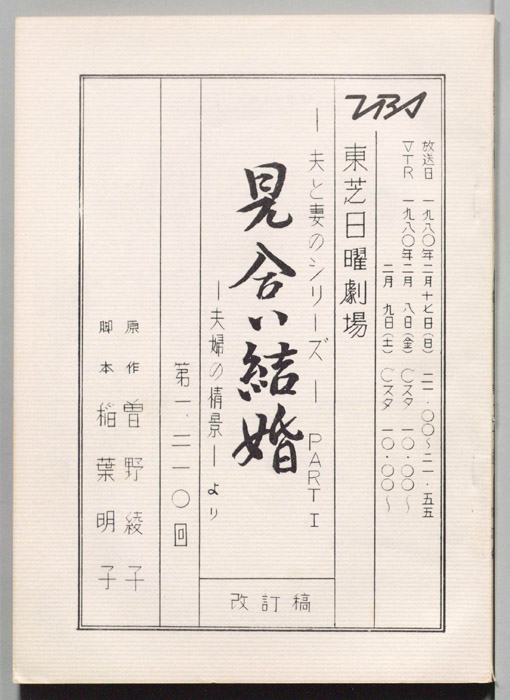 TBS
放送日 一九八〇年二月十七日(日) 二一・〇〇〜二一・五五
VTR 一九八〇年二月 八日(金) Cスタ 一〇・〇〇〜
二月 九日(土) Cスタ 一〇・〇〇〜
東芝日曜劇場
―夫と妻のシリーズ― PART I
見合い結婚
―夫婦の情景―より
改訂稿
第一、二一〇回
原作 曽野綾子
脚本 稲葉明子